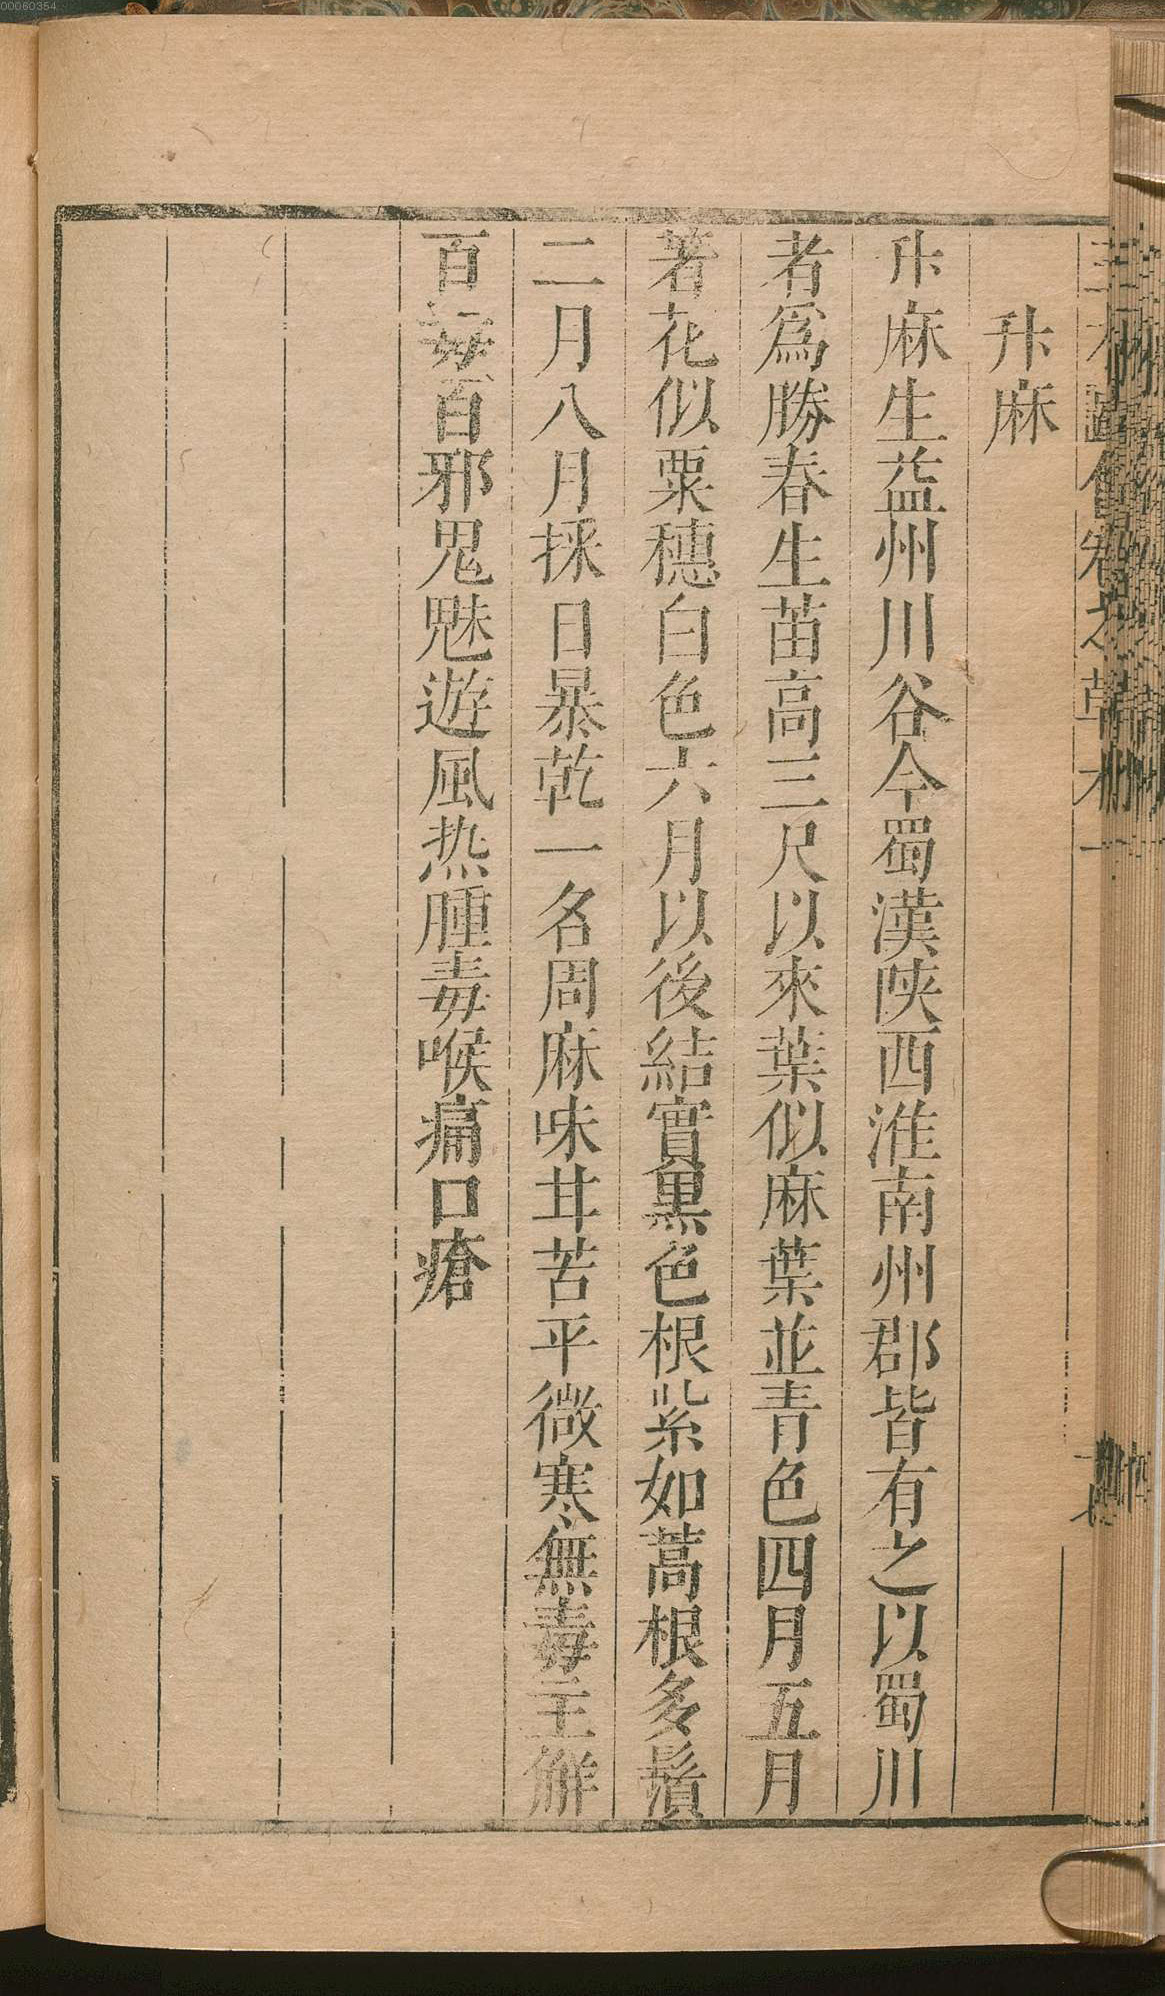 00060354
升麻
升麻生益州川谷今蜀漢陜西淮南州郡皆有之以蜀川
者爲勝春生苗高三尺以來葉似麻葉並青色四月五月
著花似粟穗白色六月以後結實黒色根紫如蒿根多鬚
二月八月採日暴乾一名周麻味甘苦平微寒無毒主解
百毒百邪鬼魅遊風热腫毒喉痛口瘡